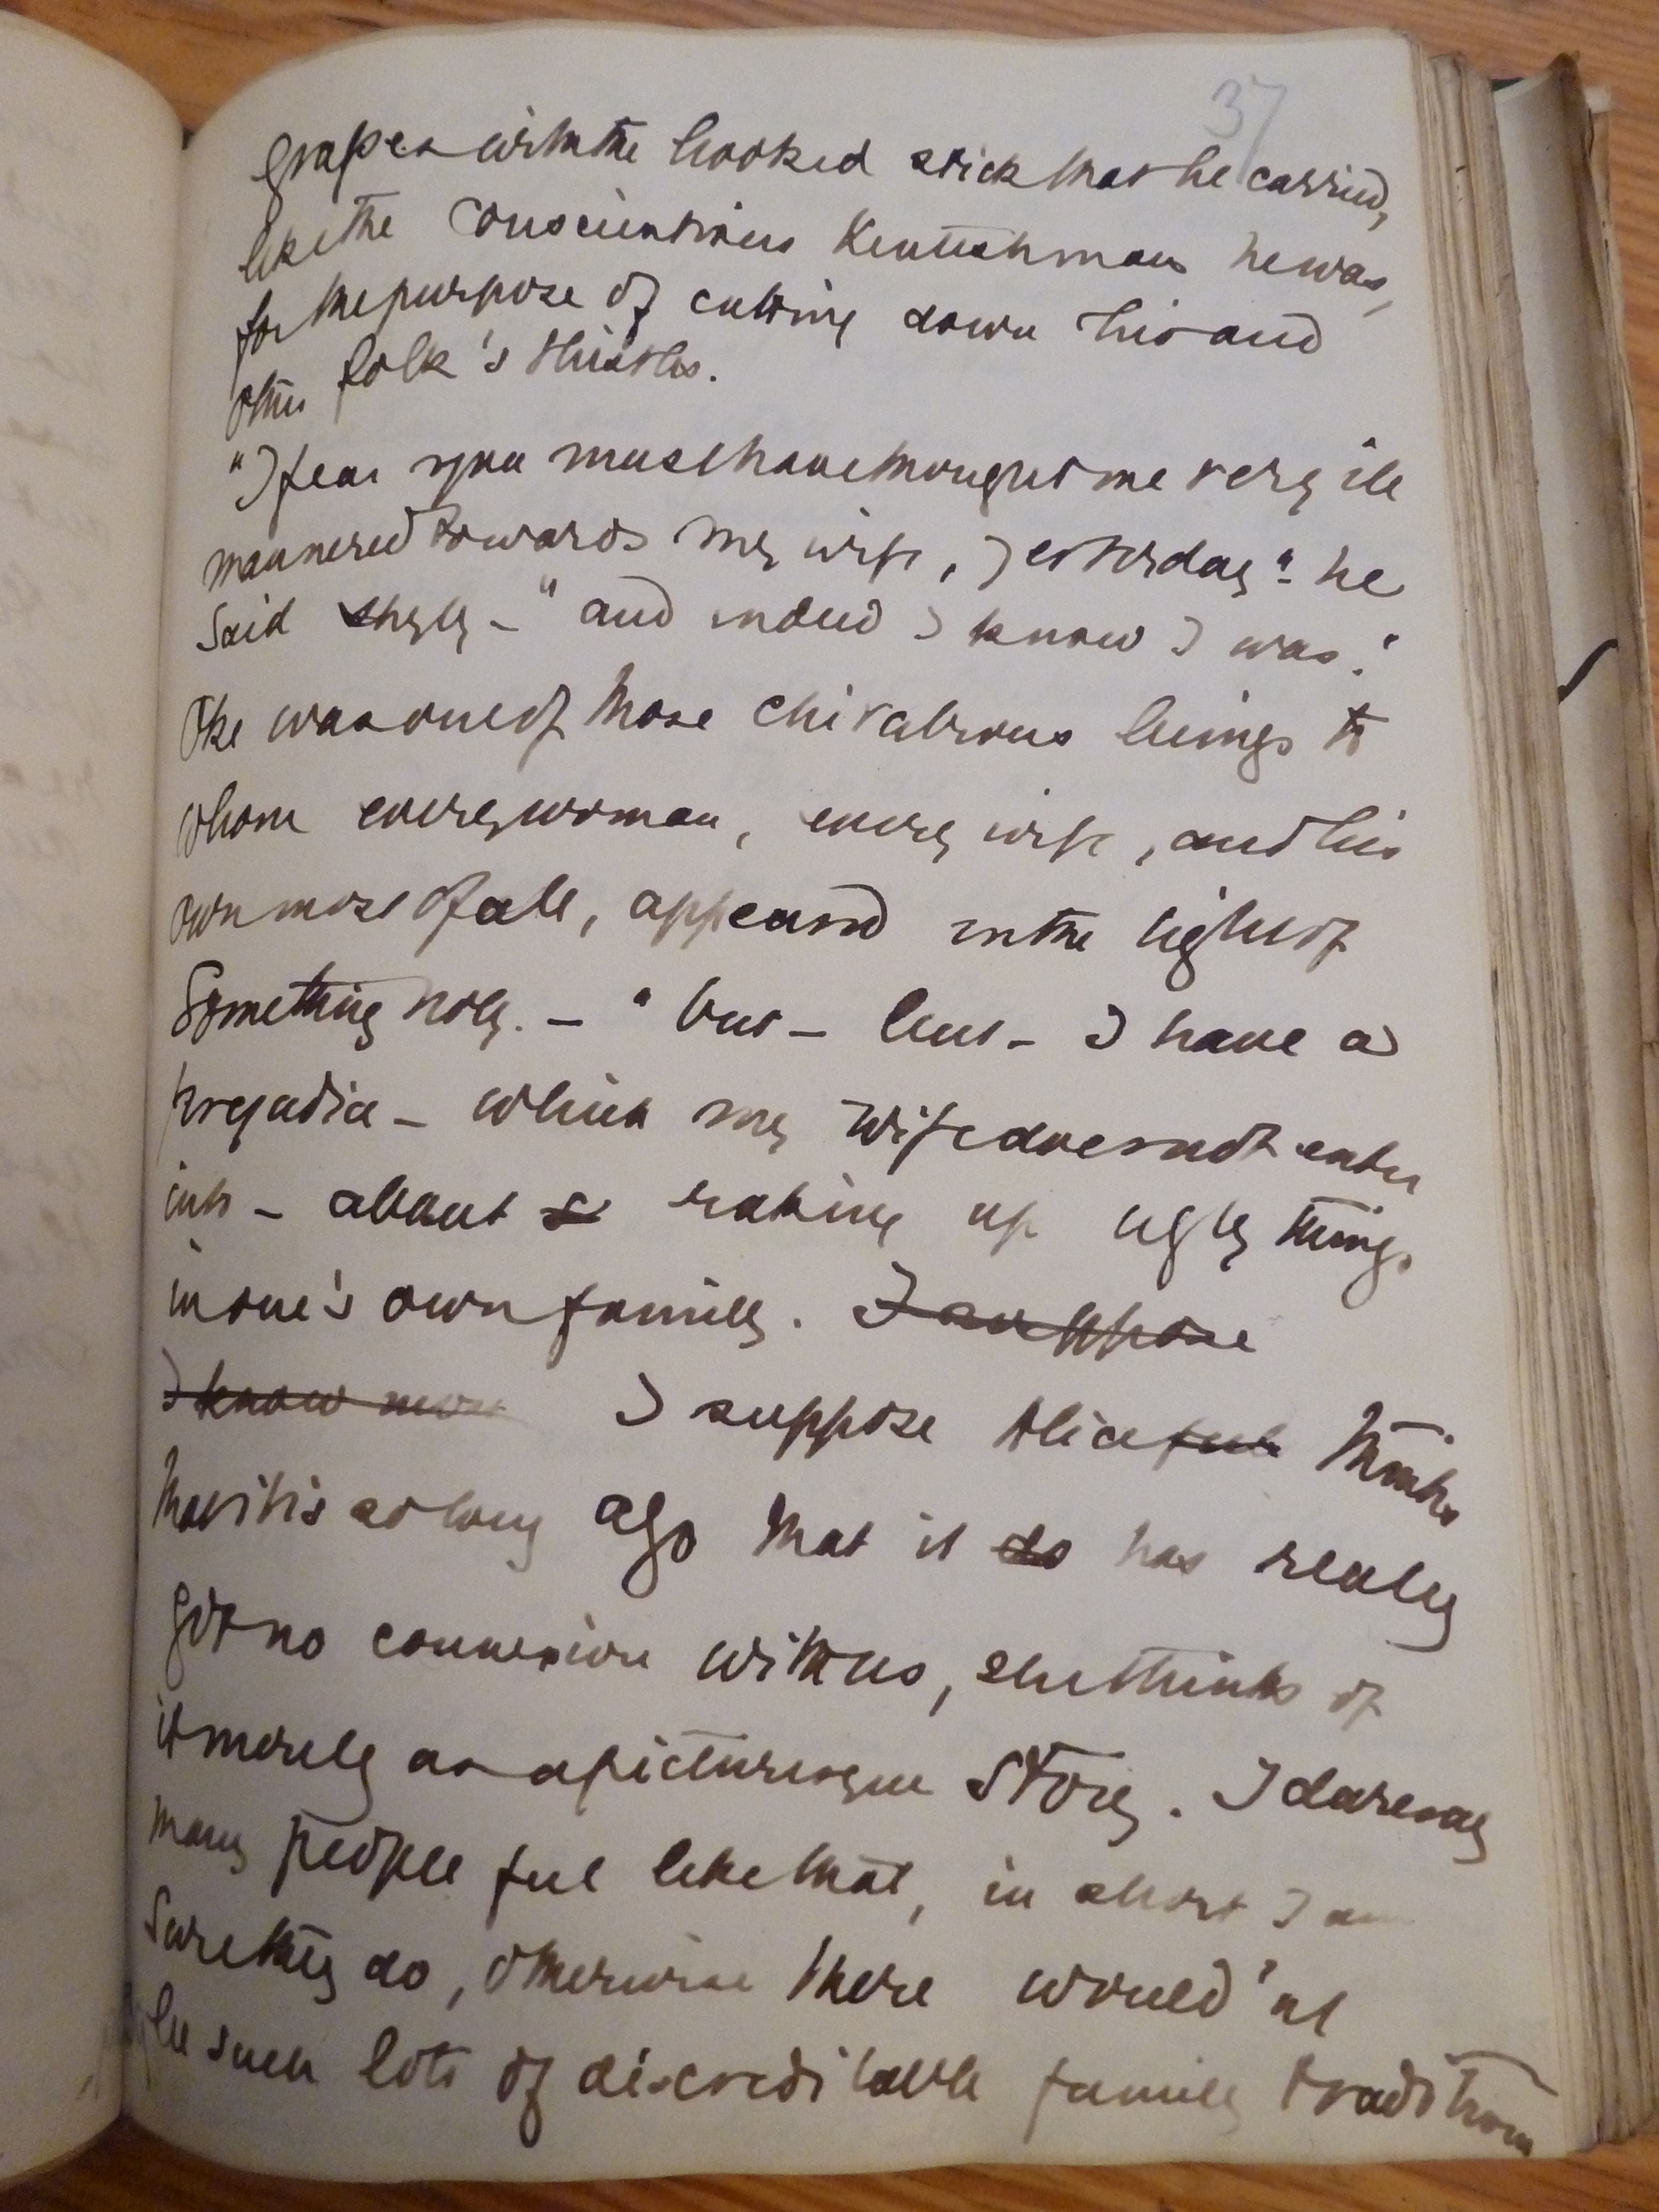 37
grapes with the hooked stick that he carried,
like the conscientious Kentishman he was,
for the purpose of cutting down his and
other folk's thistles.
"I fear you must have thought me very ill
mannered towards my wife, yesterday" - he
said shyly - "and indeed I know I was."
Oke was one of those chivalrous beings to
whom every woman, every wife, and his
own most of all, appeared in the light of
something holy. - "but - but - I have a
prejudice - which my wife does not enter
into - about s raking up ugly things
in one's own family. I suppose
I know mor I suppose Alice feels thinks
that it is so long ago that it do has really
got no connexion with us, she thinks of
it merely as a picturesque story. I daresay
many people feel like that, in short I am
sure they do, otherwise there would'nt
be such lots of discreditable family traditions